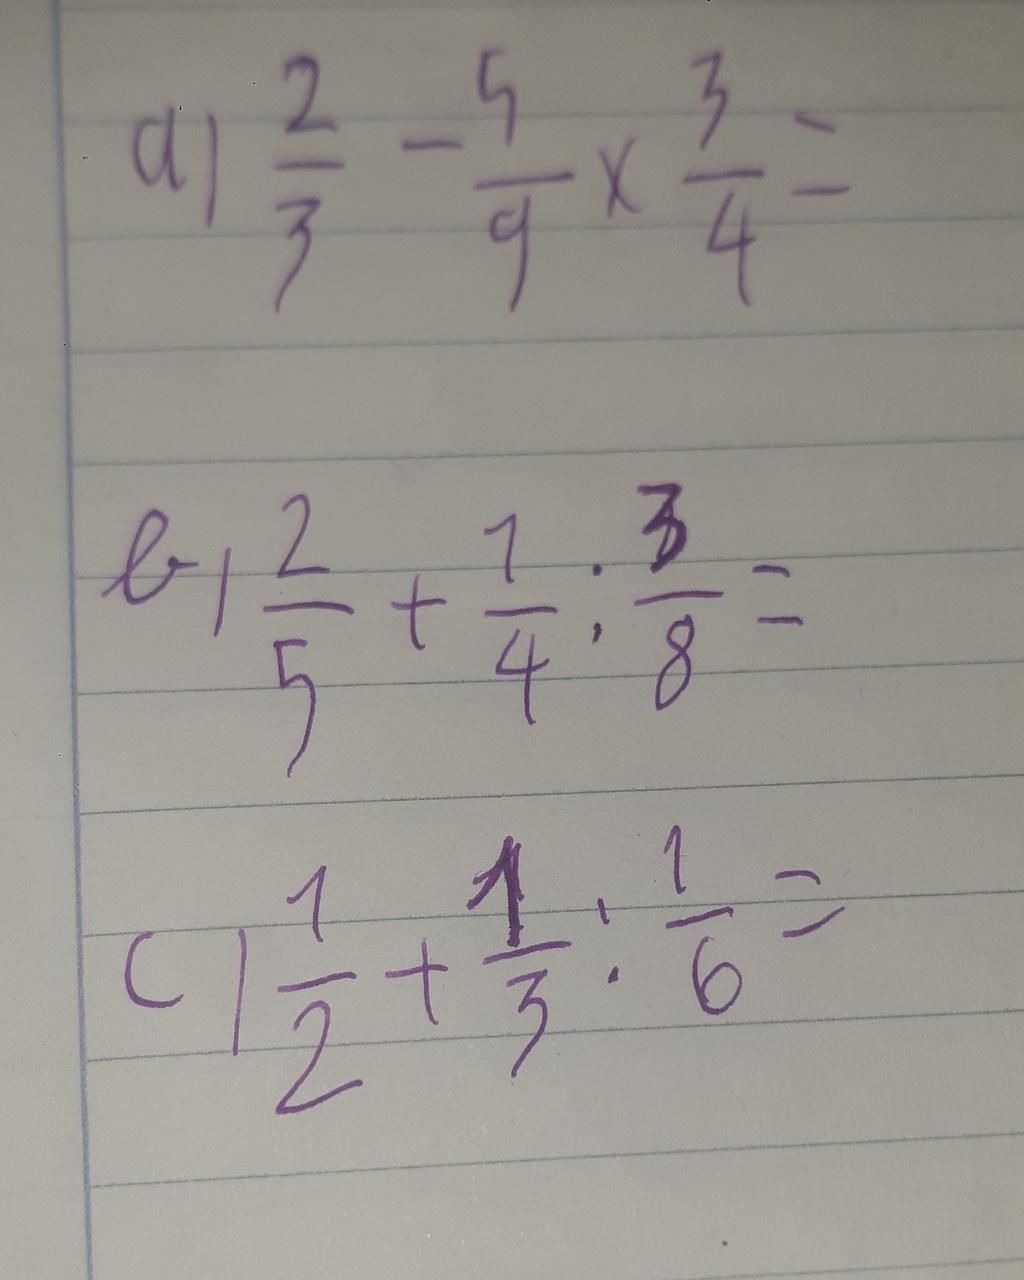 a) 2/3 - 5/9 x 3/4 =
b) 2/5 + 1/4 : 3/8 =
c) 1/2 + 1/3 : 1/6 =